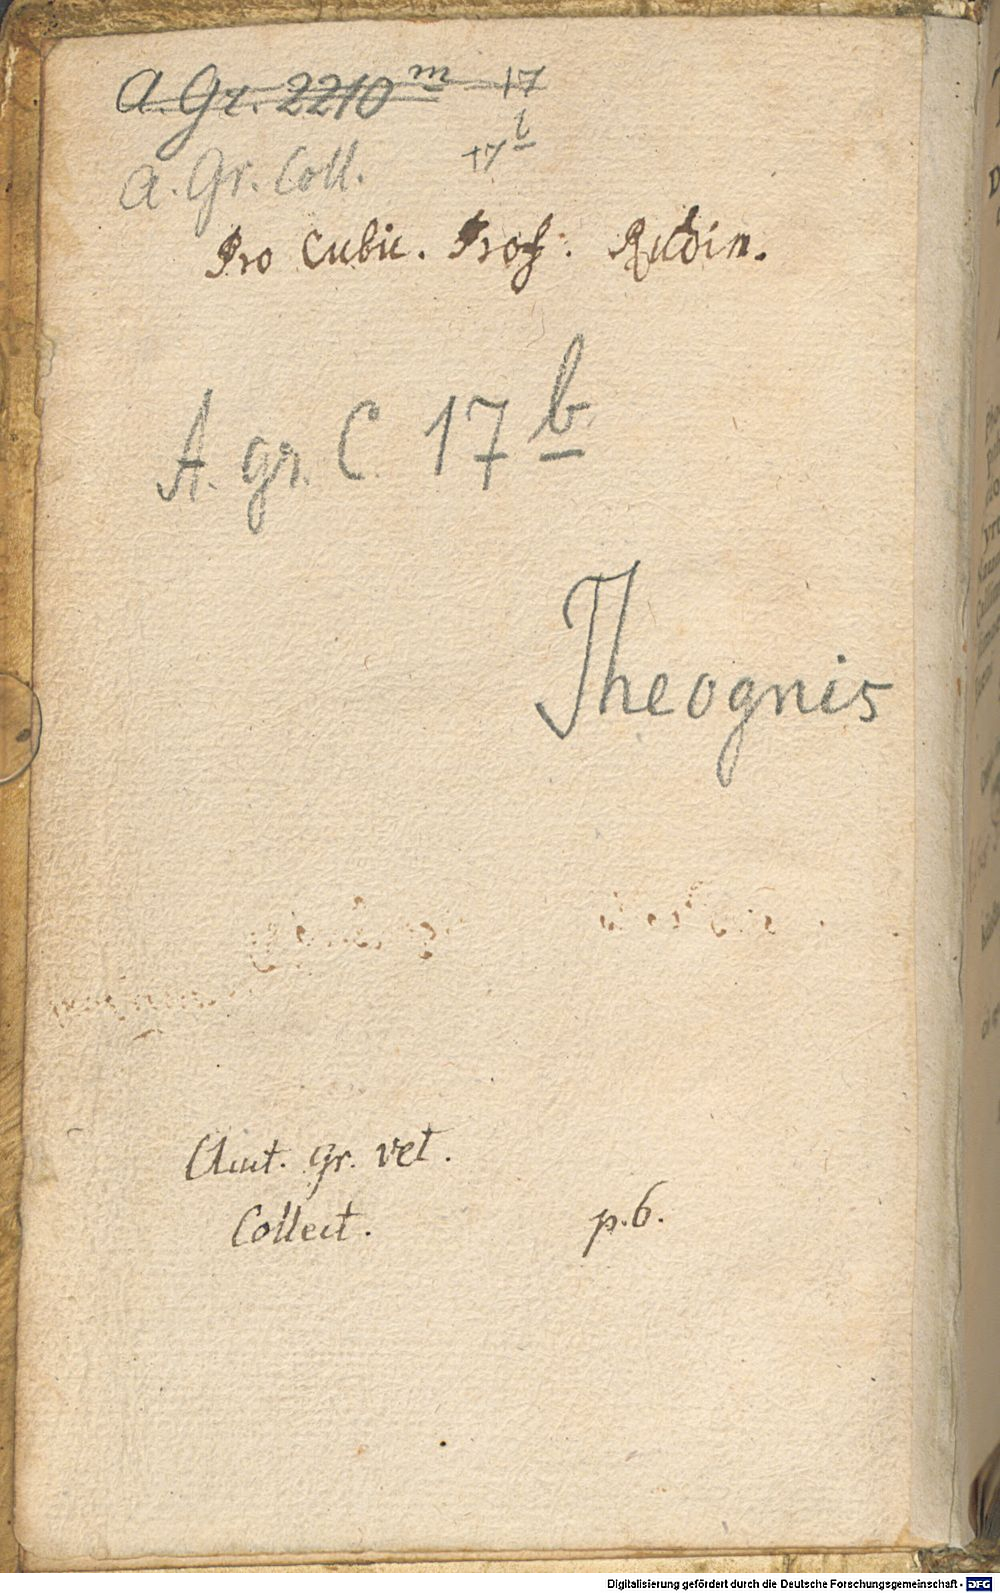 A. Gr. 2210 m 17
A. Gr. Coll. 17 b
Pro Cubic. Prof: Rubin.
A. gr. C. 17 b
Theognis
Auct. gr. vet.
Collect. p. 6.
Digitalisierung gefördert durch die Deutsche Forschungsgemeinschaft - DFG